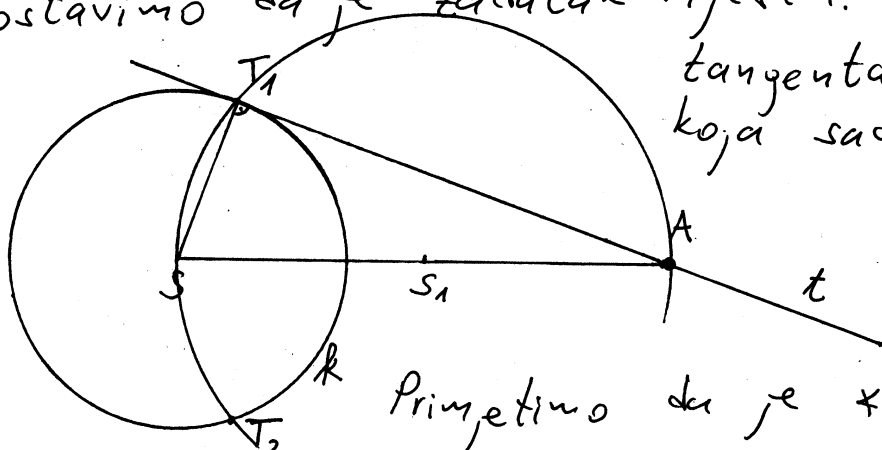 ostavimo da je zadatak riješen.
T1
tangenta
koja
A
S
S1
t
k
Primjetimo da je
T2